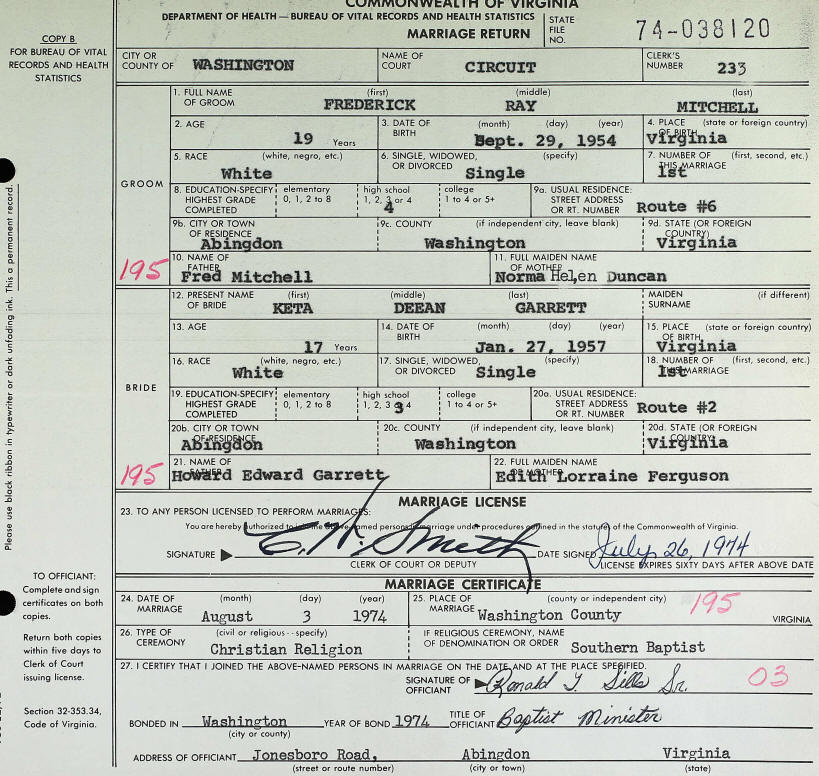 COMMONWEALTH OF VIRGINIA
DEPARTMENT OF HEALTH — BUREAU OF VITAL RECORDS AND HEALTH STATISTICS
MARRIAGE RETURN
STATE FILE NO. 74-038120
COPY B
FOR BUREAU OF VITAL RECORDS AND HEALTH STATISTICS
CITY OR COUNTY OF WASHINGTON NAME OF COURT CIRCUIT CLERK'S NUMBER 233
GROOM
1. FULL NAME OF GROOM (first) FREDERICK (middle) RAY (last) MITCHELL
2. AGE 19 Years 3. DATE OF BIRTH (month) (day) (year) Sept. 29, 1954 4. PLACE OF BIRTH (state or foreign country) Virginia
5. RACE (white, negro, etc.) White 6. SINGLE, WIDOWED, OR DIVORCED (specify) Single 7. NUMBER OF THIS MARRIAGE (first, second, etc.) 1st
8. EDUCATION-SPECIFY HIGHEST GRADE COMPLETED elementary 0, 1, 2 to 8 high school 1, 2, 3 or 4 4 college 1 to 4 or 5+ 9a. USUAL RESIDENCE: STREET ADDRESS OR RT. NUMBER Route #6
9b. CITY OR TOWN OF RESIDENCE Abingdon 9c. COUNTY (if independent city, leave blank) Washington 9d. STATE (OR FOREIGN COUNTRY) Virginia
195 10. NAME OF FATHER Fred Mitchell 11. FULL MAIDEN NAME OF MOTHER Norma Helen Duncan
BRIDE
12. PRESENT NAME OF BRIDE (first) KETA (middle) DEEAN (last) GARRETT MAIDEN SURNAME (if different)
13. AGE 17 Years 14. DATE OF BIRTH (month) (day) (year) Jan. 27, 1957 15. PLACE OF BIRTH (state or foreign country) Virginia
16. RACE (white, negro, etc.) White 17. SINGLE, WIDOWED, OR DIVORCED (specify) Single 18. NUMBER OF THIS MARRIAGE (first, second, etc.) 1st
19. EDUCATION-SPECIFY HIGHEST GRADE COMPLETED elementary 0, 1, 2 to 8 high school 1, 2, 3 4 3 college 1 to 4 or 5+ 20a. USUAL RESIDENCE: STREET ADDRESS OR RT. NUMBER Route #2
20b. CITY OR TOWN OF RESIDENCE Abingdon 20c. COUNTY (if independent city, leave blank) Washington 20d. STATE (OR FOREIGN COUNTRY) Virginia
195 21. NAME OF FATHER Howard Edward Garrett 22. FULL MAIDEN NAME OF MOTHER Edith Lorraine Ferguson
MARRIAGE LICENSE
23. TO ANY PERSON LICENSED TO PERFORM MARRIAGES:
You are hereby authorized to join the above-named persons in marriage under procedures outlined in the statutes of the Commonwealth of Virginia.
SIGNATURE C. W. Smith DATE SIGNED July 26, 1974
CLERK OF COURT OR DEPUTY LICENSE EXPIRES SIXTY DAYS AFTER ABOVE DATE
MARRIAGE CERTIFICATE
24. DATE OF MARRIAGE (month) (day) (year) August 3 1974 25. PLACE OF MARRIAGE (county or independent city) Washington County 195 VIRGINIA
26. TYPE OF CEREMONY (civil or religious--specify) Christian Religion IF RELIGIOUS CEREMONY, NAME OF DENOMINATION OR ORDER Southern Baptist
27. I CERTIFY THAT I JOINED THE ABOVE-NAMED PERSONS IN MARRIAGE ON THE DATE AND AT THE PLACE SPECIFIED.
SIGNATURE OF OFFICIANT Ronald T. Sills Sr. 03
BONDED IN Washington (city or county) YEAR OF BOND 1974 TITLE OF OFFICIANT Baptist Minister
ADDRESS OF OFFICIANT Jonesboro Road, Abingdon Virginia
(street or route number) (city or town) (state)
Please use black ribbon in typewriter or dark unfading ink. This a permanent record.
TO OFFICIANT:
Complete and sign
certificates on both
copies.
Return both copies
within five days to
Clerk of Court
issuing license.
Section 32-353.34,
Code of Virginia.